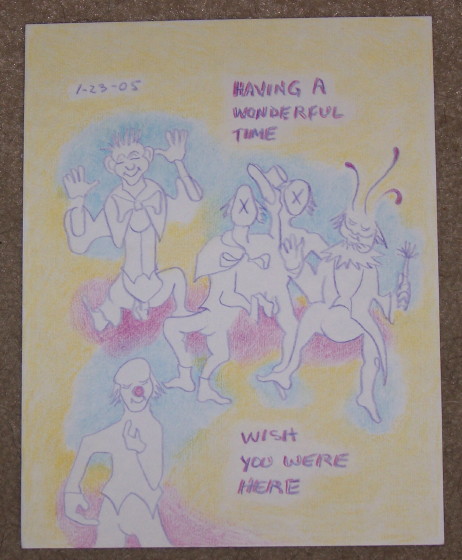 1-23-05
HAVING A
WONDERFUL
TIME
X
X
WISH
YOU WERE
HERE